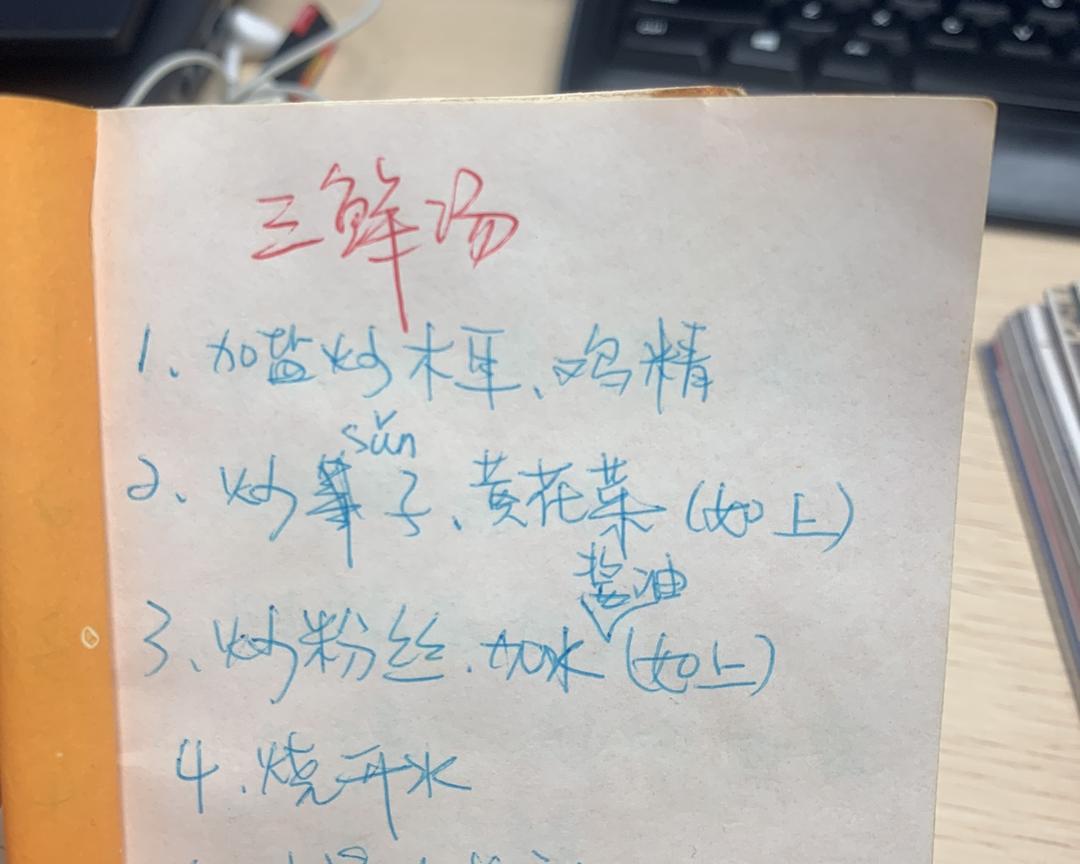 三鲜汤
1、加盐炒木耳、鸡精
sǔn
2、炒笋子、黄花菜(如上)
酱油
3、炒粉丝.加水(如上)
4.烧开水